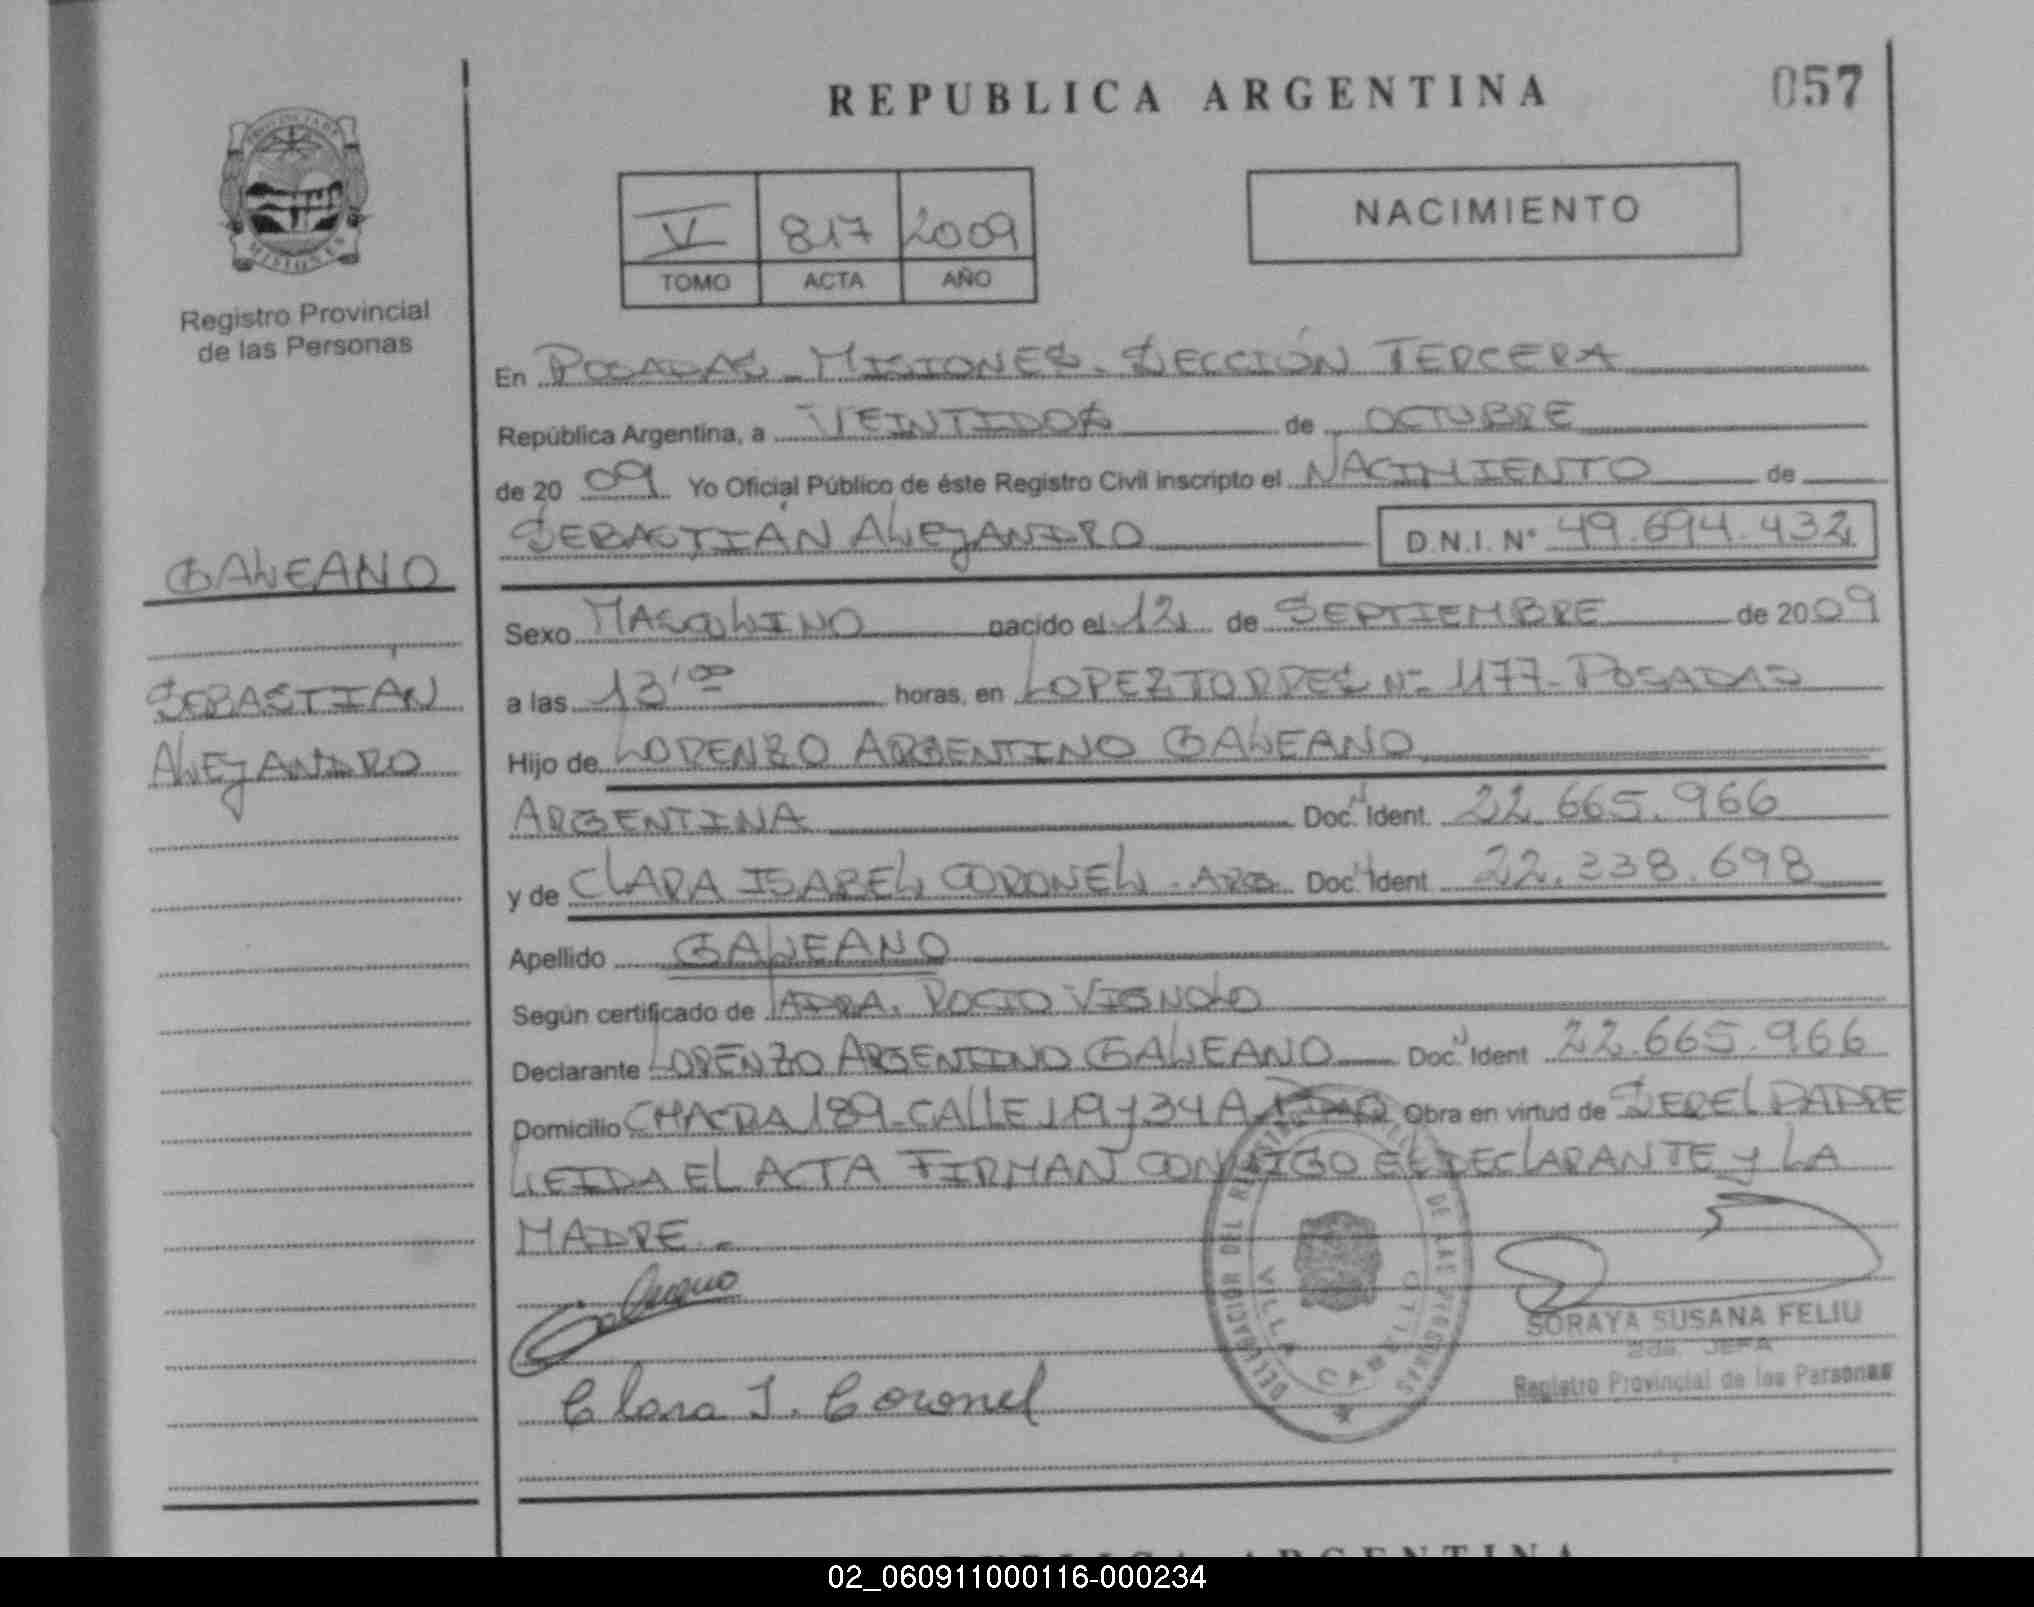 REPUBLICA ARGENTINA
057
PROVINCIA DE
MISIONES
Registro Provincial
de las Personas
V 817 2009
TOMO ACTA AÑO
NACIMIENTO
En POSADAS - MISIONES. SECCIÓN TERCERA
República Argentina, a VEINTIDOS de OCTUBRE
de 2009 Yo Oficial Público de éste Registro Civil inscripto el NACIMIENTO de
SEBASTIÁN ALEJANDRO D.N.I. N° 49.694.432
GALEANO
SEBASTIÁN
ALEJANDRO
Sexo MASCULINO nacido el 12 de SEPTIEMBRE de 2009
a las 13'00 horas, en LOPEZ TORRES Nº 1177 - POSADAS
Hijo de LORENZO ARGENTINO GALEANO
ARGENTINA Doc. Ident. 22.665.966
y de CLARA ISABEL CORONEL - ARG Doc. Ident. 22.338.698
Apellido GALEANO
Según certificado de DRA. ROCIO VIGNOLO
Declarante LORENZO ARGENTINO GALEANO Doc. Ident 22.665.966
Domicilio CHACRA 189 - CALLE 19 y 34 A Obra en virtud de SER EL PADRE
LEIDA EL ACTA FIRMAN CONMIGO EL DECLARANTE y LA
MADRE -
Galeano
Clara I. Coronel
DELEGACION DEL REGISTRO DE LAS PERSONAS
VILLA CABELLO
SORAYA SUSANA FELIU
2da. JEFA
Registro Provincial de las Personas
REPUBLICA ARGENTINA
02_060911000116-000234